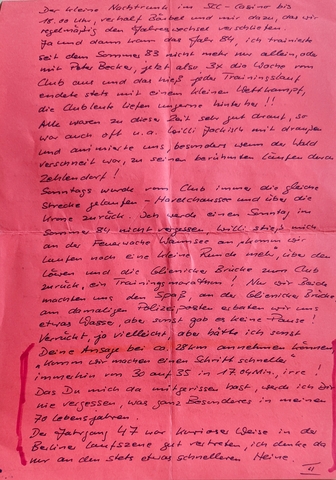 Der kleine Nachtrunk im SCC-Casino bis
18.00 Uhr, verhalf Bärbel und mir dazu, das wir
regelmäßig den Jahreswechsel verschliefen.
Ja und dann kam das Jahr 84, ich trainierte
seit dem Sommer 83 nicht mehr nur allein, oder
mit Peter Becker, jetzt also 3x die Woche vom
Club aus und das hieß jeder Trainingslauf
endete stets mit einem kleinen Wettkampf,
die Clubleute liefen ungerne hinterher!!
Alle waren zu dieser Zeit sehr gut drauf, so
war auch oft u.a. Willi Jachisch mit draußen
und animierte uns, besonders wenn der Wald
verschneit war, zu seinen berühmten Läufen durch
Zehlendorf!
Sonntags wurde vom Club immer die gleiche
Strecke gelaufen - Havelchaussee und über die
Krone zurück. Ich werde einen Sonntag im
Sommer 84 nicht vergessen. Willi stieß mich
an der Feuerwache Wannsee an, komm wir
laufen noch eine kleine Runde mehr, über den
Löwen und die Glienicker Brücke zum Club
zurück, ein Trainingsmarathon! Nur wir Beide
machten uns den Spaß, an der Glienicker Brück
am damaligen Polizeiposten erbaten wir uns
etwas Wasser, aber sonst gab es keine Pause!
Verrückt, ja vielleicht, aber hätte ich sonst
Deine Ansage bei ca. 28km annehmen können
"Komm wir machen einen Schritt schneller"
immerhin vom 30 auf 35 in 17.04 Min, irre!
Das Du mich da mitgerissen hast, werde ich Dir nie
vergessen, was ganz Besonderes in meinen
70 Lebensjahren.
Der Jahrgang 47 war kurioser Weise in der
Berliner Laufszene gut vertreten, ich denke da
nur an den stets etwas schnelleren Heine.